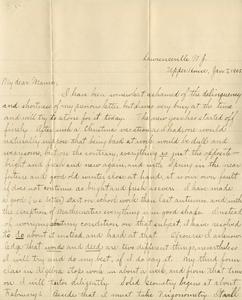 Lawrenceville N.J.
Upper House, Jan 7, 1905
My dear Mamma,
I have been somewhat ashamed of the delinquency
and shortness of my previous letter but I was very busy at the time
and will try to atone for it today. The new year has started off
finely. After such a Christmas vacation as I had, one would
naturally suppose that being back at work would be dull and
wearisome, but on the contrary, everything is just the opposite
bright and fresh and new again, and with Spring in the near
future and good old winter close at hand, it is our own fault
if does not continue as bright and fresh as ever. I have made
a good start on school work than last autumn and with
the exception of Mathematics everything is in good shape. Instead
of worrying about any condition on that subject I have resolved
to about it and hard at that. Of course I acknow-
ledge that words and deeds are two different things, nevertheless
I will try and do my best, if I do say it. My third form
class in Algebra starts work in about a week, and from that time
on I will toil diligently. Solid Geometry begins at about
February. Besides that I must take Trigonometry